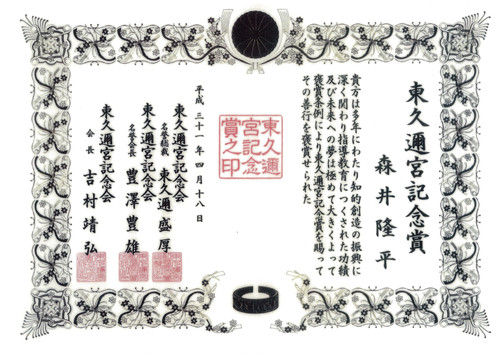 東久邇宮記念賞
森井隆平
貴方は多年にわたり知的創造の振興に
深く関わり指導教育につくされた功績
及び未来への夢は極めて大きくよって
褒賞条例により東久邇宮記念賞を賜って
その善行を褒賞せられた
東久邇
宮記念
賞之印
平成三十一年四月十八日
東久邇宮記念会
名誉総裁 東久邇盛厚
東久邇宮記念会
名誉会長 豊澤豊雄
東久邇宮記念会
会長 吉村靖弘